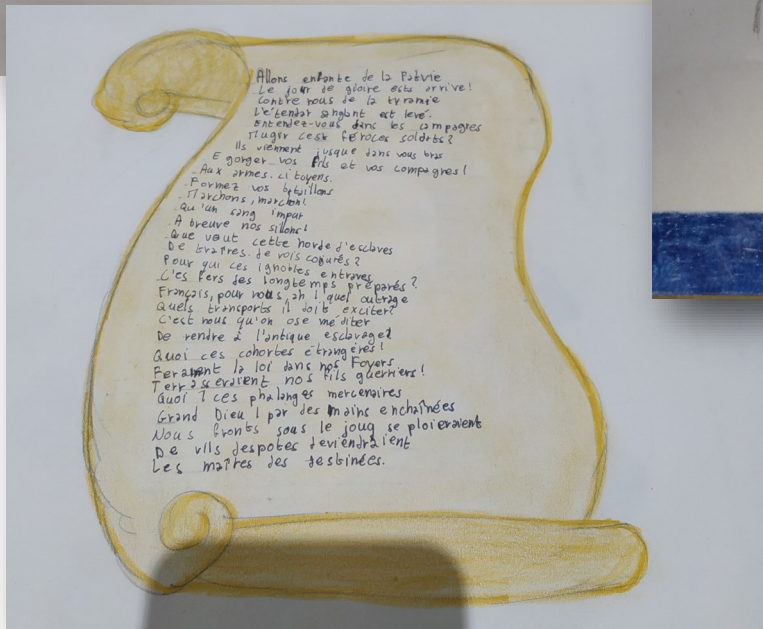 Allons enfante de la Patrie
Le jour de gloire ests arrive!
Contre nous de la tyranie
L'étendar sanglant est levé.
Entendez-vous dans les campagnes
Mugir ces féroces soldats?
Ils viennent jusque dans vous bras
Egorger vos fils et vos compagnes!
Aux armes. citoyens.
Formez vos bataillons
Marchons, marchon!
Qu'un sang impur
A breuve nos sillons!
Que veut cette horde d'esclaves
De traîtres. de rois conjurés?
Pour qui ces ignobles entraves
C'es fers des longtemps préparés?
Français, pour nous, ah! quel outrage
Quels transports il doit exciter?
C'est nous qu'on ose méditer
De rendre à l'antique esclavage!
Quoi ces cohortes étrangères!
Feraient la loi dans nos Foyers
Terrasseraient nos fils guerriers!
Quoi! ces phalanges mercenaires
Grand Dieu! par des mains enchaînées
Nous fronts sous le joug se ploieraient
De vils despotes deviendraient
Les maîtres des destinées.